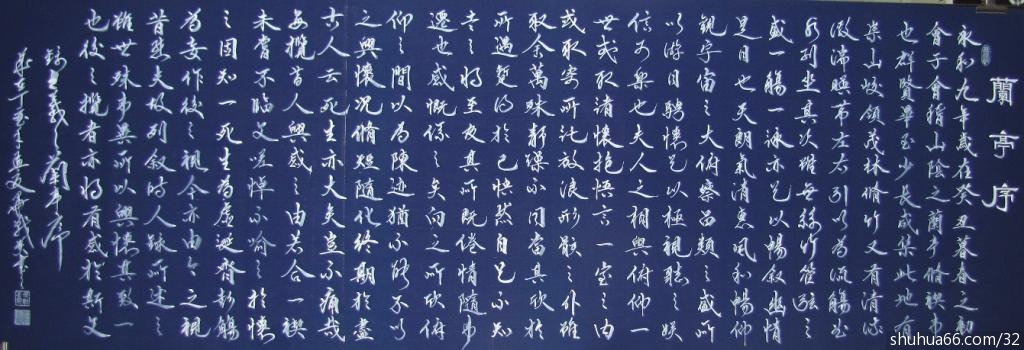 蘭亭序
永和九年歲在癸丑暮春之初
會于會稽山陰之蘭亭脩禊事
也群賢畢至少長咸集此地有
崇山峻領茂林脩竹又有清流
激湍暎帶左右引以為流觴曲
水列坐其次雖無絲竹管弦之
盛一觴一詠亦足以暢叙幽情
是日也天朗氣清惠風和暢仰
觀宇宙之大俯察品類之盛所
以游目騁懷足以極視聽之娛
信可樂也夫人之相與俯仰一
世或取諸懷抱悟言一室之內
或取寄所託放浪形骸之外雖
取舍萬殊靜躁不同當其欣於
所遇暫得於己快然自足不知
老之將至及其所既倦情隨事
遷也感慨係之矣向之所欣俯
仰之間以為陳迹猶不能不以
之興懷況脩短隨化終期於盡
古人云死生亦大矣豈不痛哉
每攬昔人興感之由若合一契
未嘗不臨文嗟悼不喻之於懷
之固知一死生為虛誕齊彭殤
為妄作後之視今亦由今之視
昔悲夫故列叙時人錄所述之
雖世殊事異所以興懷其致一
也後之攬者亦將有感於斯文
錄王羲之蘭亭序
shuhua66.com/32